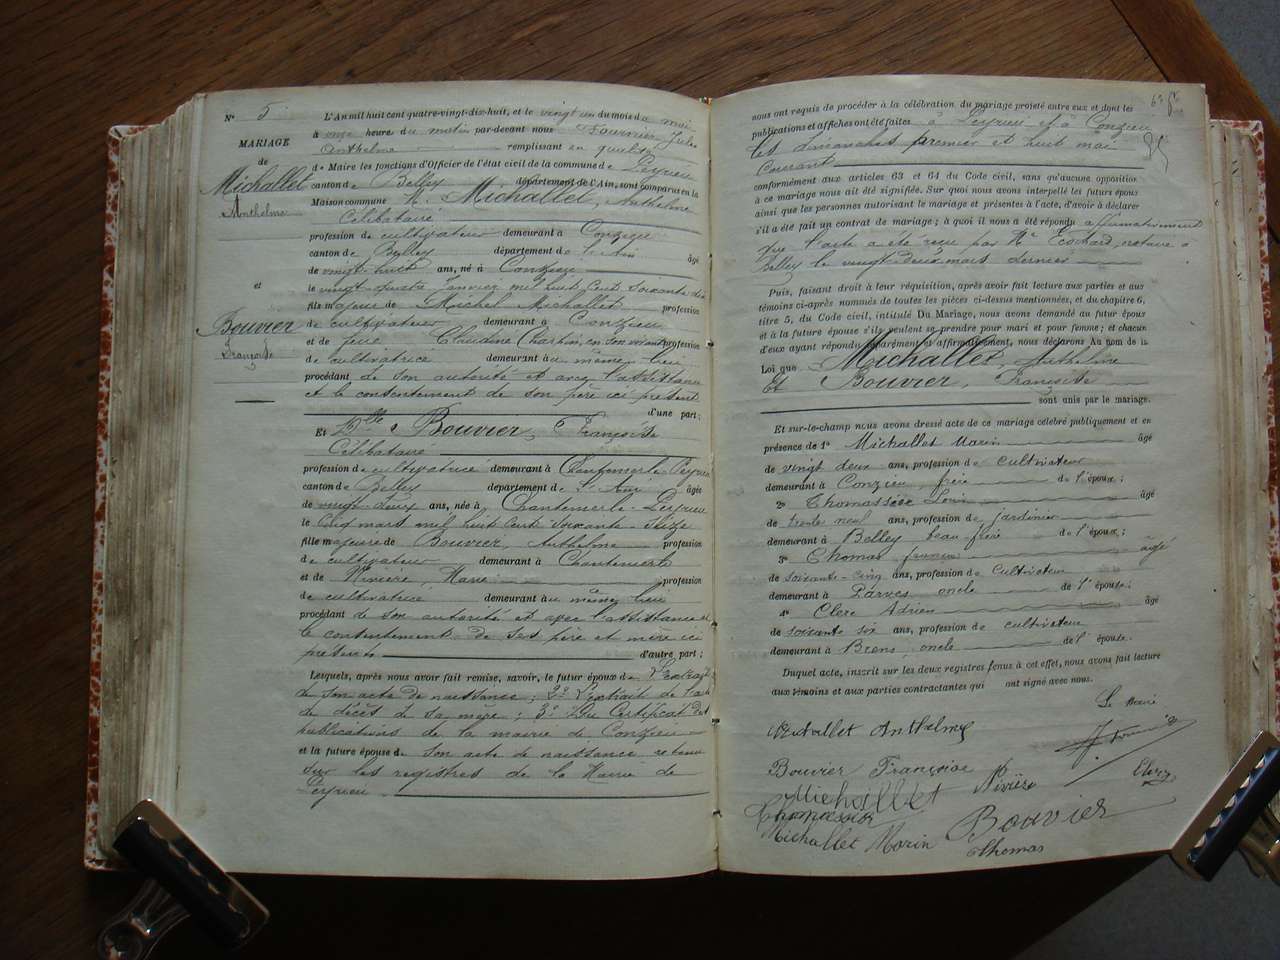 N° 5
MARIAGE
de
Michallet
Anthelme
et
Bouvier
Françoise
L'An mil huit cent quatre-vingt-dix-huit, et le vingt un du mois de mai
à onze heure du matin par-devant nous Fournier Jules
Anthelme remplissant en qualité
de Maire les fonctions d'Officier de l'état civil de la commune de Peyrieu
canton de Belley département de l'Ain, sont comparus en la
Maison commune M. Michallet, Anthelme
Célibataire
profession de cultivateur demeurant à Conzieu
canton de Belley département de l'Ain âgé
de vingt huit ans, né à Conzieu
le vingt quatre Janvier mil huit cent soixante dix
fils majeur de Michel Michallet profession
de cultivateur demeurant à Conzieu
et de feue Claudine Charlin, en son vivant profession
de cultivatrice demeurant au même lieu
procédant de son autorité et avec l'assistance
et le consentement de son père ici présent
d'une part;
Et Dlle Bouvier, Françoise
Célibataire
profession de cultivatrice demeurant à Chantemerle-Peyrieu
canton de Belley département de l'Ain âgée
de vingt deux ans, née à Chantemerle-Peyrieu
le cinq mars mil huit cent soixante-seize
fille majeure de Bouvier, Anthelme profession
de cultivateur demeurant à Chantemerle
et de Marie profession
de cultivatrice demeurant au même lieu
procédant de son autorité et avec l'assistance et
le consentement de ses père et mère ici
présents d'autre part;
Lesquels, après nous avoir fait remise, savoir, le futur époux de 1° L'extrait
de son acte de naissance; 2° L'extrait de l'acte
de décès de sa mère; 3° Du Certificat des
publications de la mairie de Conzieu
et la future épouse de son acte de naissance retenu
sur les registres de la Mairie de
Peyrieu
nous ont requis de procéder à la célébration du mariage projeté entre eux et dont les
publications et affiches ont été faites à Peyrieu et à Conzieu
les dimanches premier et huit mai
Courant
conformément aux articles 63 et 64 du Code civil, sans qu'aucune opposition
à ce mariage nous ait été signifiée. Sur quoi nous avons interpellé les futurs époux
ainsi que les personnes autorisant le mariage et présentes à l'acte, d'avoir à déclarer
s'il a été fait un contrat de mariage; à quoi il nous a été répondu affirmativement
que l'acte a été reçu par Me Ecochard, notaire à
Belley le vingt deux mars dernier
Puis, faisant droit à leur réquisition, après avoir fait lecture aux parties et aux
témoins ci-après nommés de toutes les pièces ci-dessus mentionnées, et du chapitre 6,
titre 5, du Code civil, intitulé Du Mariage, nous avons demandé au futur époux
et à la future épouse s'ils veulent se prendre pour mari et pour femme; et chacun
d'eux ayant répondu séparément et affirmativement, nous déclarons Au nom de la
Loi que Michallet, Anthelme
Et Bouvier, Françoise
sont unis par le mariage.
Et sur-le-champ nous avons dressé acte de ce mariage célébré publiquement et en
présence de 1° Michallet Marin âgé
de vingt deux ans, profession de cultivateur
demeurant à Conzieu, frère de l'époux;
2° Thomassier Louis âgé
de trente neuf ans, profession de jardinier
demeurant à Belley beau-frère de l'époux;
3° Thomas âgé
de soixante-cinq ans, profession de Cultivateur
demeurant à Parves oncle de l'épouse;
4° Clerc Adrien âgé
de soixante six ans, profession de cultivateur
demeurant à Brens, oncle de l'épouse.
Duquel acte, inscrit sur les deux registres tenus à cet effet, nous avons fait lecture
aux témoins et aux parties contractantes qui ont signé avec nous.
Le Maire
Michallet Anthelme
Bouvier Françoise
Clerc
Michallet
Thomassier
Bouvier
Michallet Marin
Thomas